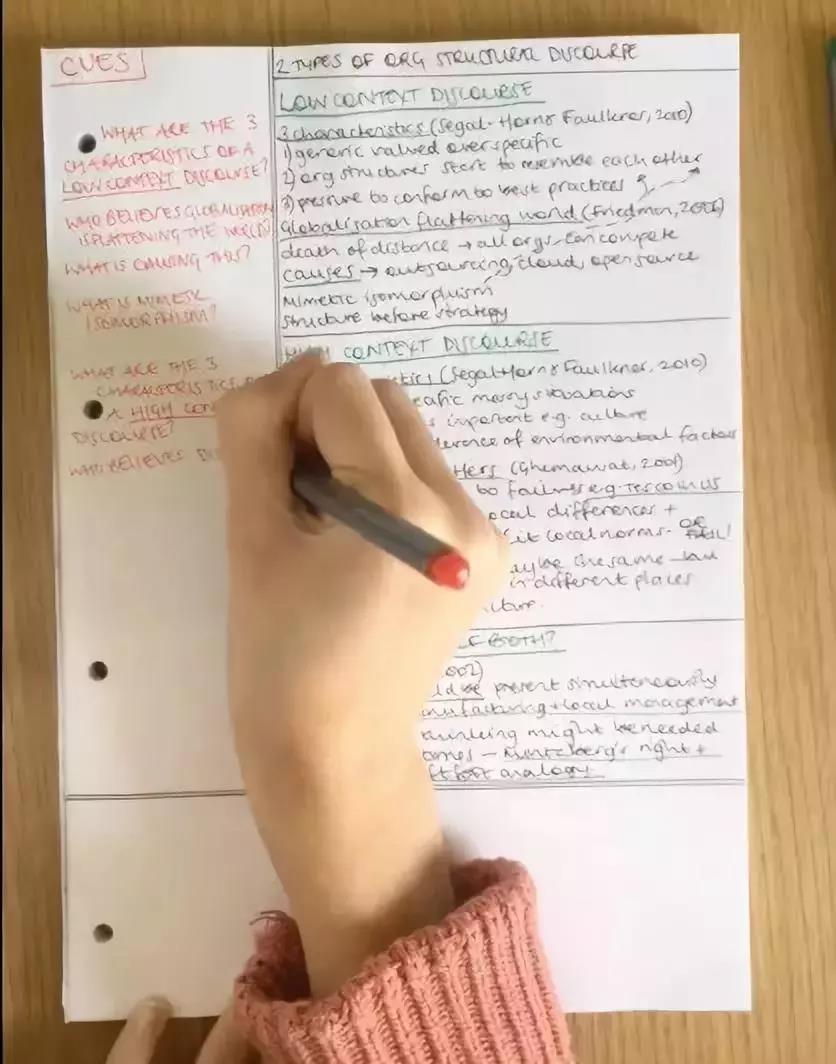 CUES
WHAT ARE THE 3
CHARACTERISTICS OF A
LOW CONTEXT DISCOURSE?
WHO BELIEVES GLOBALISATION
IS FLATTENING THE WORLD?
WHAT IS CAUSING THIS?
WHAT IS MIMETIC
ISOMORPHISM?
WHAT ARE THE 3
CHARACTERISTICS
A HIGH CON
DISCOURSE?
WHO BELIEVES
2 TYPES OF ORG STRUCTURAL DISCOURSE
LOW CONTEXT DISCOURSE
3 characteristics (Segal-Horn & Faulkner, 2010)
1) generic valued over specific
2) org structures start to resemble each other
3) pressure to conform to best practices
Globalisation flattening world (Friedman, 2006)
death of distance → all orgs can compete
causes → outsourcing, cloud, open source
Mimetic isomorphism
Structure before strategy
HIGH CONTEXT DISCOURSE
(Segal-Horn & Faulkner, 2010)
situations
important e.g. culture
of environmental factors
(Ghemawat, 2001)
to failures e.g. Tesco in US
local differences +
local norms - OR FAIL!
the same but
in different places
BOTH?
present simultaneously
+ local management
thinking might be needed
- Mintzberg's right +
analogy